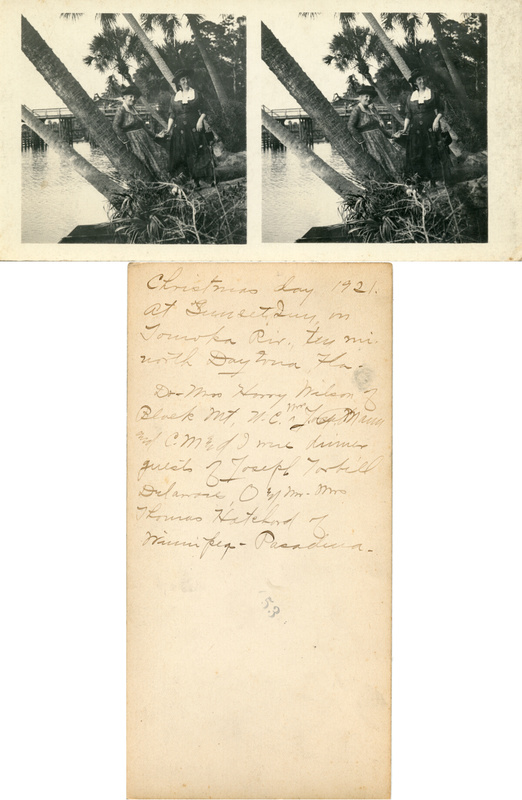 Christmas day 1921.
At Sunset Inn, on
Tomoka Riv., ten mi.
north Daytona, Fla.
Dr- Mrs Harry Wilson of
Black Mt, N.C. Mrs Mann
and C.M. & I were dinner
guests of Joseph
Delaware, O & Mr- Mrs
Thomas of
Winnipeg - Pasadina -
53